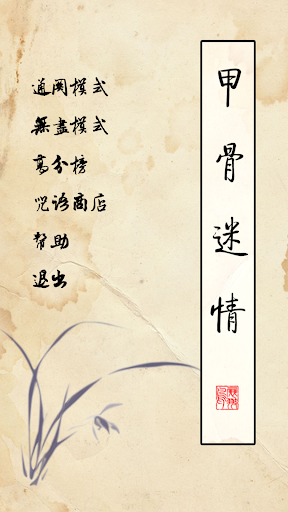 甲骨迷情
通关模式
無盡模式
高分榜
咒语商店
幫助
退出